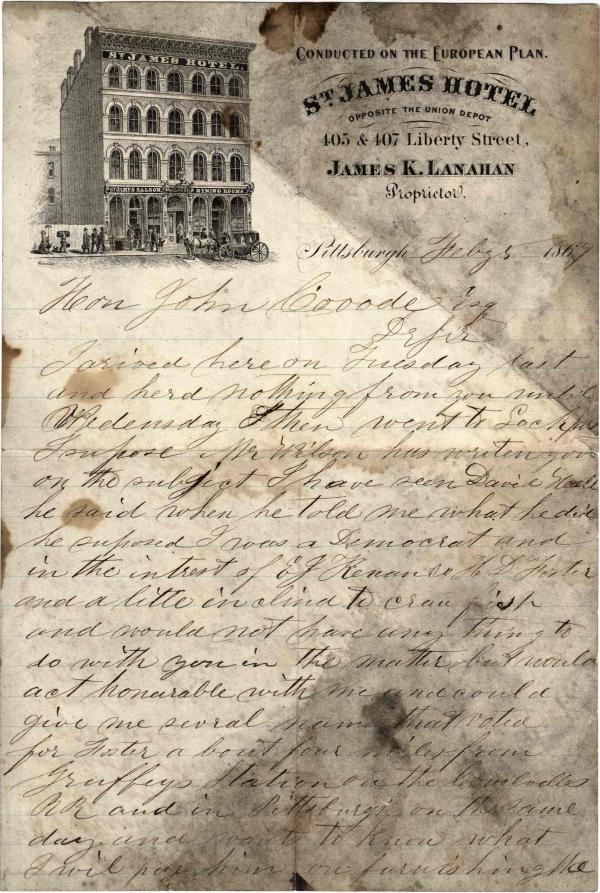 ST JAMES HOTEL.
ST JAMES SALOON. & DINING ROOMS
CONDUCTED ON THE EUROPEAN PLAN.
ST JAMES HOTEL
OPPOSITE THE UNION DEPOT
405 & 407 Liberty Street,
JAMES K. LANAHAN
Proprietor.
Pittsburgh Feby 5 1869
Hon John Covode Esq
Dr Sir
I arived here on Tuesday last
and herd nothing from you until
Wedensday I then went to
I supose Mr Wilson has writen you
on the subject I have seen David
he said when he told me what he did
he suposed I was a Democrat and
in the intrest of E J Kenan & H D Foster
and a litle in clind to craw fish
and would not have any thing to
do with you in the matter but would
act honarable with me and could
give me sevral names that voted
for Foster a bout four miles from
Station on the
RR and in Pittsburgh on the same
day and want to know what
I wil pay him on furnishing the